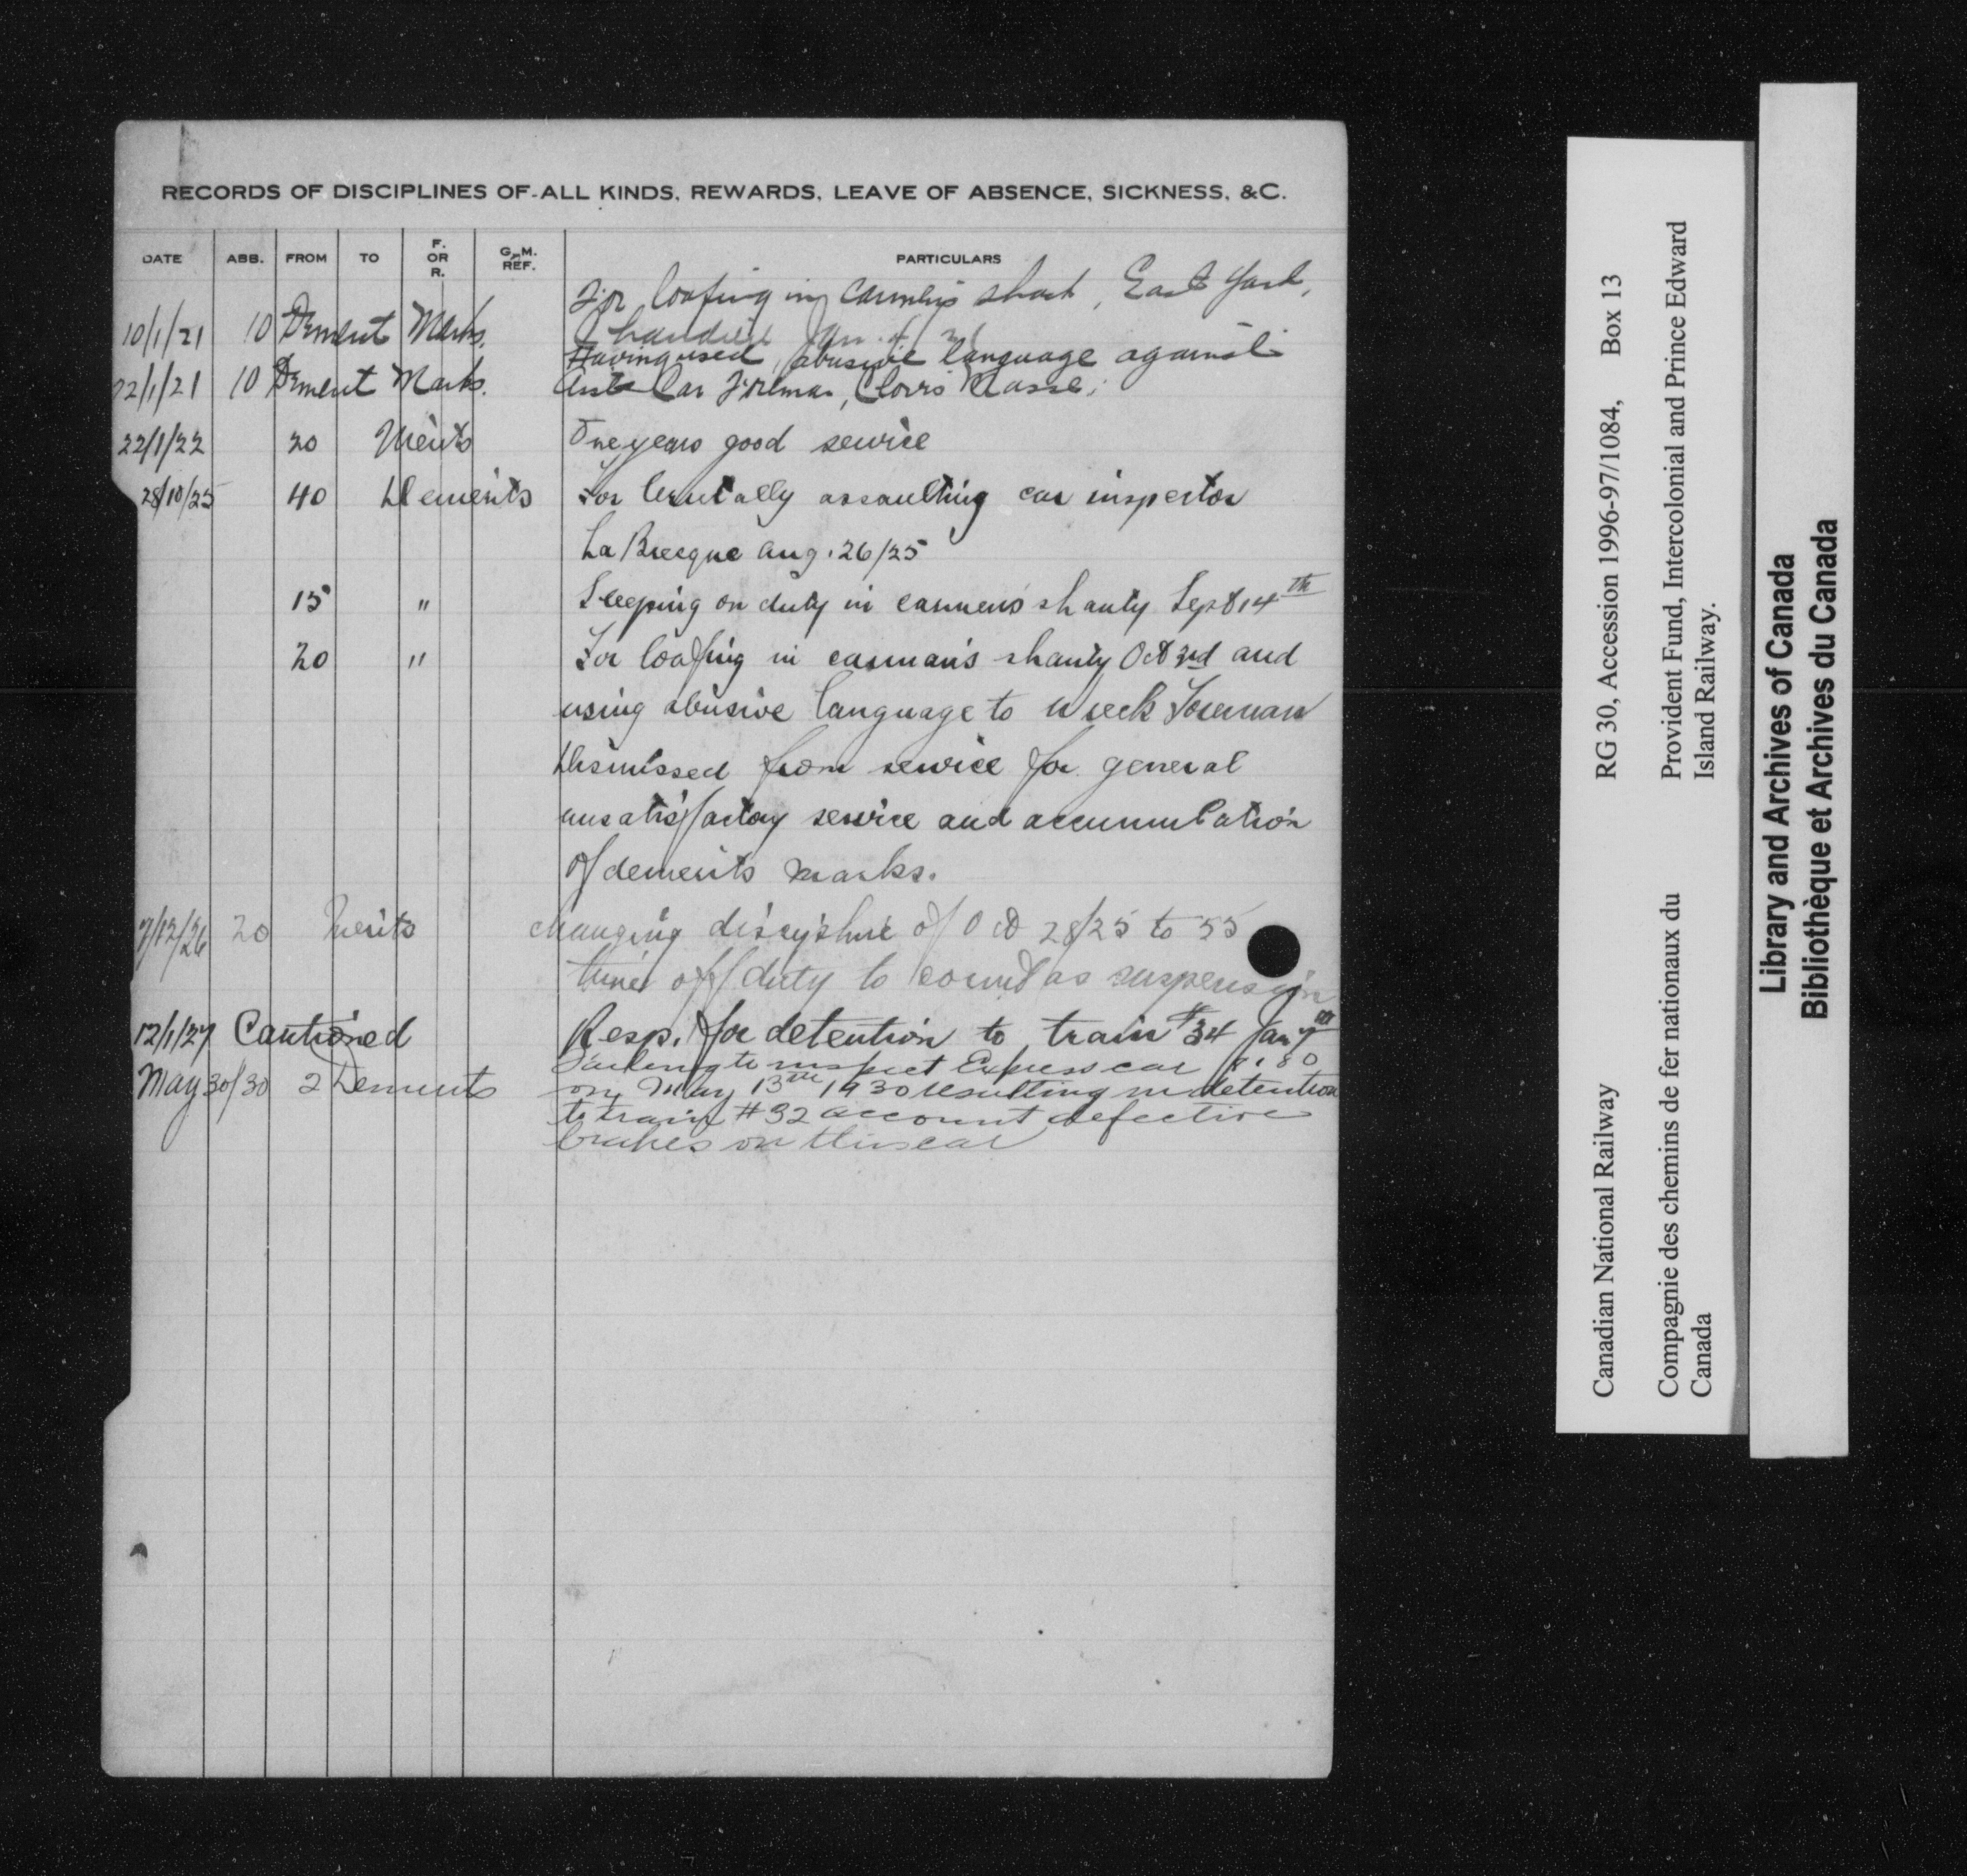 RECORDS OF DISCIPLINES OF ALL KINDS, REWARDS, LEAVE OF ABSENCE, SICKNESS, &C.
DATE ABB. FROM TO F. OR R. G.M. REF. PARTICULARS
For loafing in carmen's shack, East Yard,
10/1/21 10 Demerit Marks. Chaudière Jan.
Having used abusive language against
22/1/21 10 Demerit Marks. Asst Car Foreman, Clovis Masse.
22/1/22 20 Merits One years good service
28/10/25 40 Demerits For brutally assaulting car inspector
La Brecque Aug. 26/25
15 " Sleeping on duty in carmen's shanty Sept 14th
20 " For loafing in carman's shanty Oct 3rd and
using abusive language to wreck Foreman
Dismissed from service for general
unsatisfactory service and accumulation
of demerits marks.
7/12/26 20 Merits changing discipline of Oct 28/25 to 55
time off duty to count as suspension
12/1/27 Cautioned Resp. for detention to train #34 Jan 7th
Failing to inspect Express car
May 30/30 2 Demerits on May 13th 1930 resulting in detention
to train #32 account defective
brakes on this car
Canadian National Railway RG 30, Accession 1996-97/1084, Box 13
Compagnie des chemins de fer nationaux du Canada
Provident Fund, Intercolonial and Prince Edward Island Railway.
Library and Archives of Canada
Bibliothèque et Archives du Canada